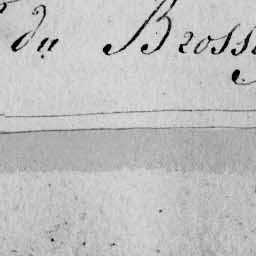 du Bross